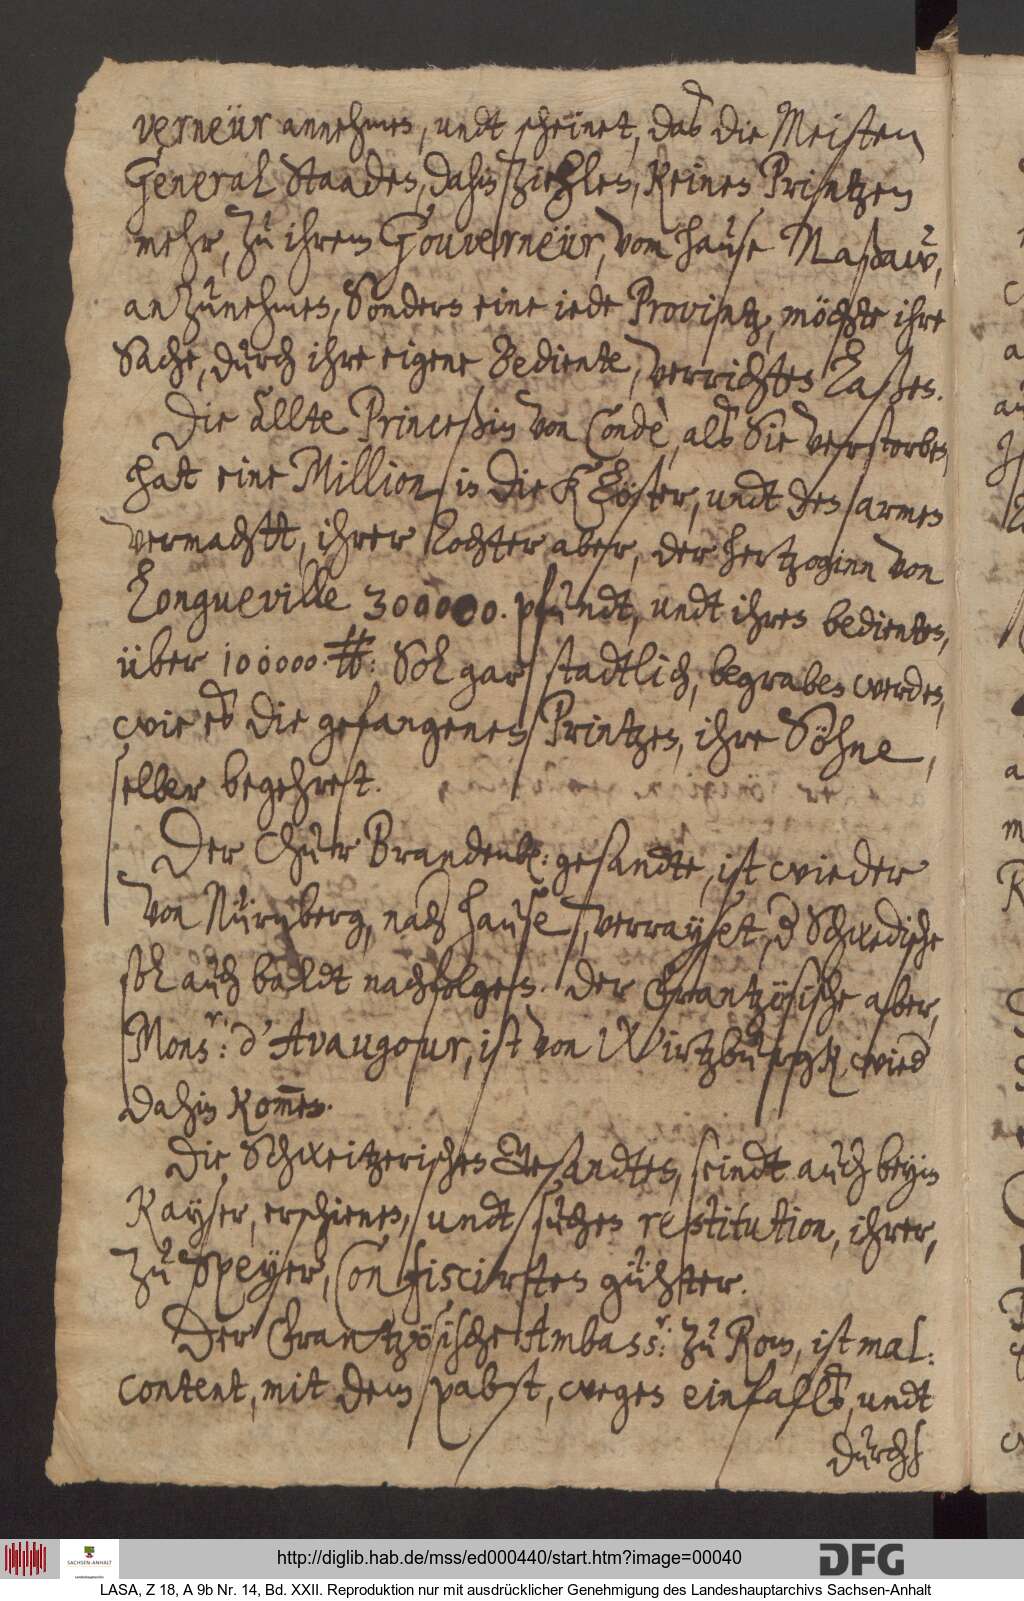 verneür annehmen, undt scheinet, daß die Meisten
General Staaden, dahin ziehlen, keinen Printzen
mehr, zu ihrem Gouverneür, vom hause Naßaw,
anzunehmen, Sondern eine iede Provintz, möchte ihre
Sache, durch ihre eigene Bediente, verrichten laßen.
Die ällte Princeßin von Condè, alß Sie verstorben,
hatt eine Million, in die Klöster, undt den armen
vermachtt, ihrer Tochter aber, der hertzoginn von
Longueville 300000. pfundt, undt ihren bedienten,
über 100000. ₶: Sol gar stadtlich, begraben werden,
wie eß die gefangenen Printzen, ihre Söhne,
selber begehret.
Der Chur Brandenb: gesandte, ist wieder
von Nürnberg, nach hause, verrayset, d Schwedische
sol auch baldt nachfolgen. Der Frantzösische aber,
Mons:r d'Avaugour, ist von Wirtzburgk wied
dahin kommen.
Die Schweitzerischen Gesandten, seindt auch beym
Kayser, erschienen, undt suchen restitution, ihrer,
zu Speyer, Confiscirten gühter.
Der Frantzösische Ambass:r zu Rom, ist mal:
content, mit dem pabst, wegen einfalls, undt
durchs
http://diglib.hab.de/mss/ed000440/start.htm?image=00040
DFG
SACHSEN-ANHALT
LASA, Z 18, A 9b Nr. 14, Bd. XXII. Reproduktion nur mit ausdrücklicher Genehmigung des Landeshauptarchivs Sachsen-Anhalt